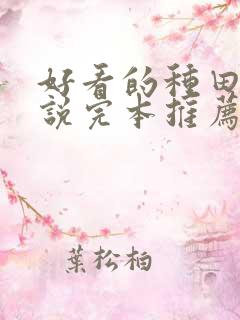 好看的種田
說完本推薦
葉松柏